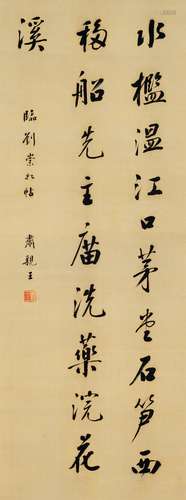 水檻溫江口茅堂石笋西
移船先主廟洗藥浣花
溪
臨劉崇如帖
肅親王